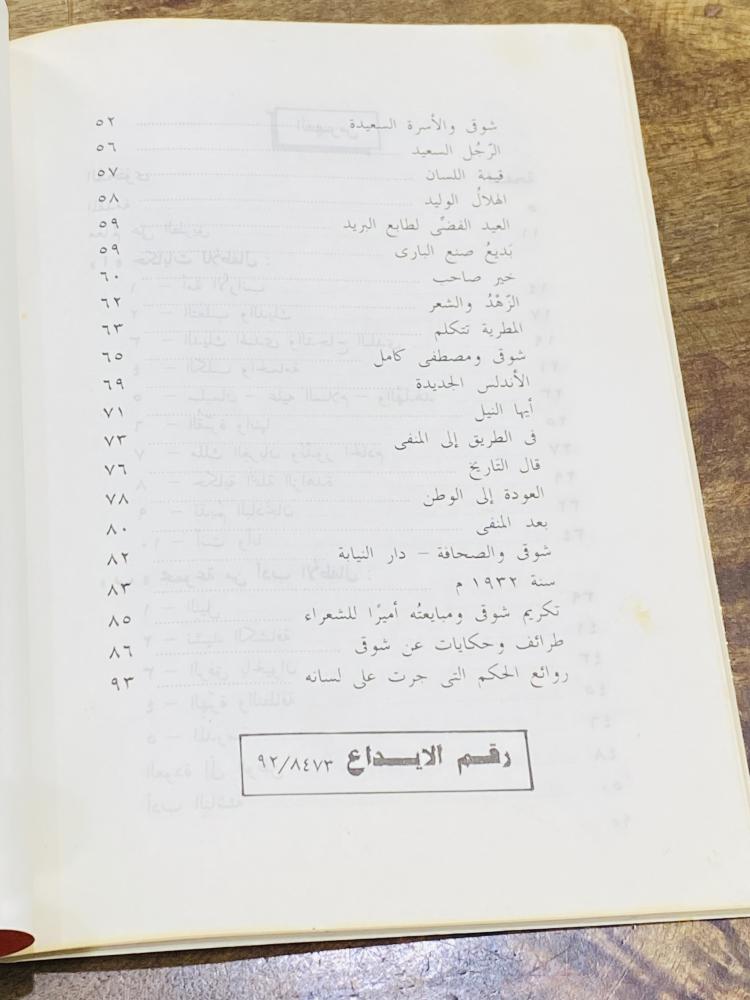 شوقى والأسرة السعيدة ٥٢
الرّجُل السعيد ٥٦
قيمة اللسان ٥٧
الهلالُ الوليد ٥٨
العيد الفضِّى لطابع البريد ٥٩
بَديعُ صنع البارى ٥٩
خير صاحب ٦٠
الزّهْدُ والشعر ٦٢
المطرية تتكلم ٦٣
شوقى ومصطفى كامل ٦٥
الأندلس الجديدة ٦٩
أيها النيل ٧١
فى الطريق إلى المنفى ٧٣
قال التاريخ ٧٦
العودة إلى الوطن ٧٨
بعد المنفى ٨٠
شوقى والصحافة – دار النيابة ٨٢
سنة ١٩٣٢ م ٨٣
تكريم شوقى ومبايعتُه أميرًا للشعراء ٨٥
طرائف وحكايات عن شوقى ٨٦
روائع الحكم التى جرت على لسانه ٩٣
رقم الايداع ٩٢/٨٤٧٣